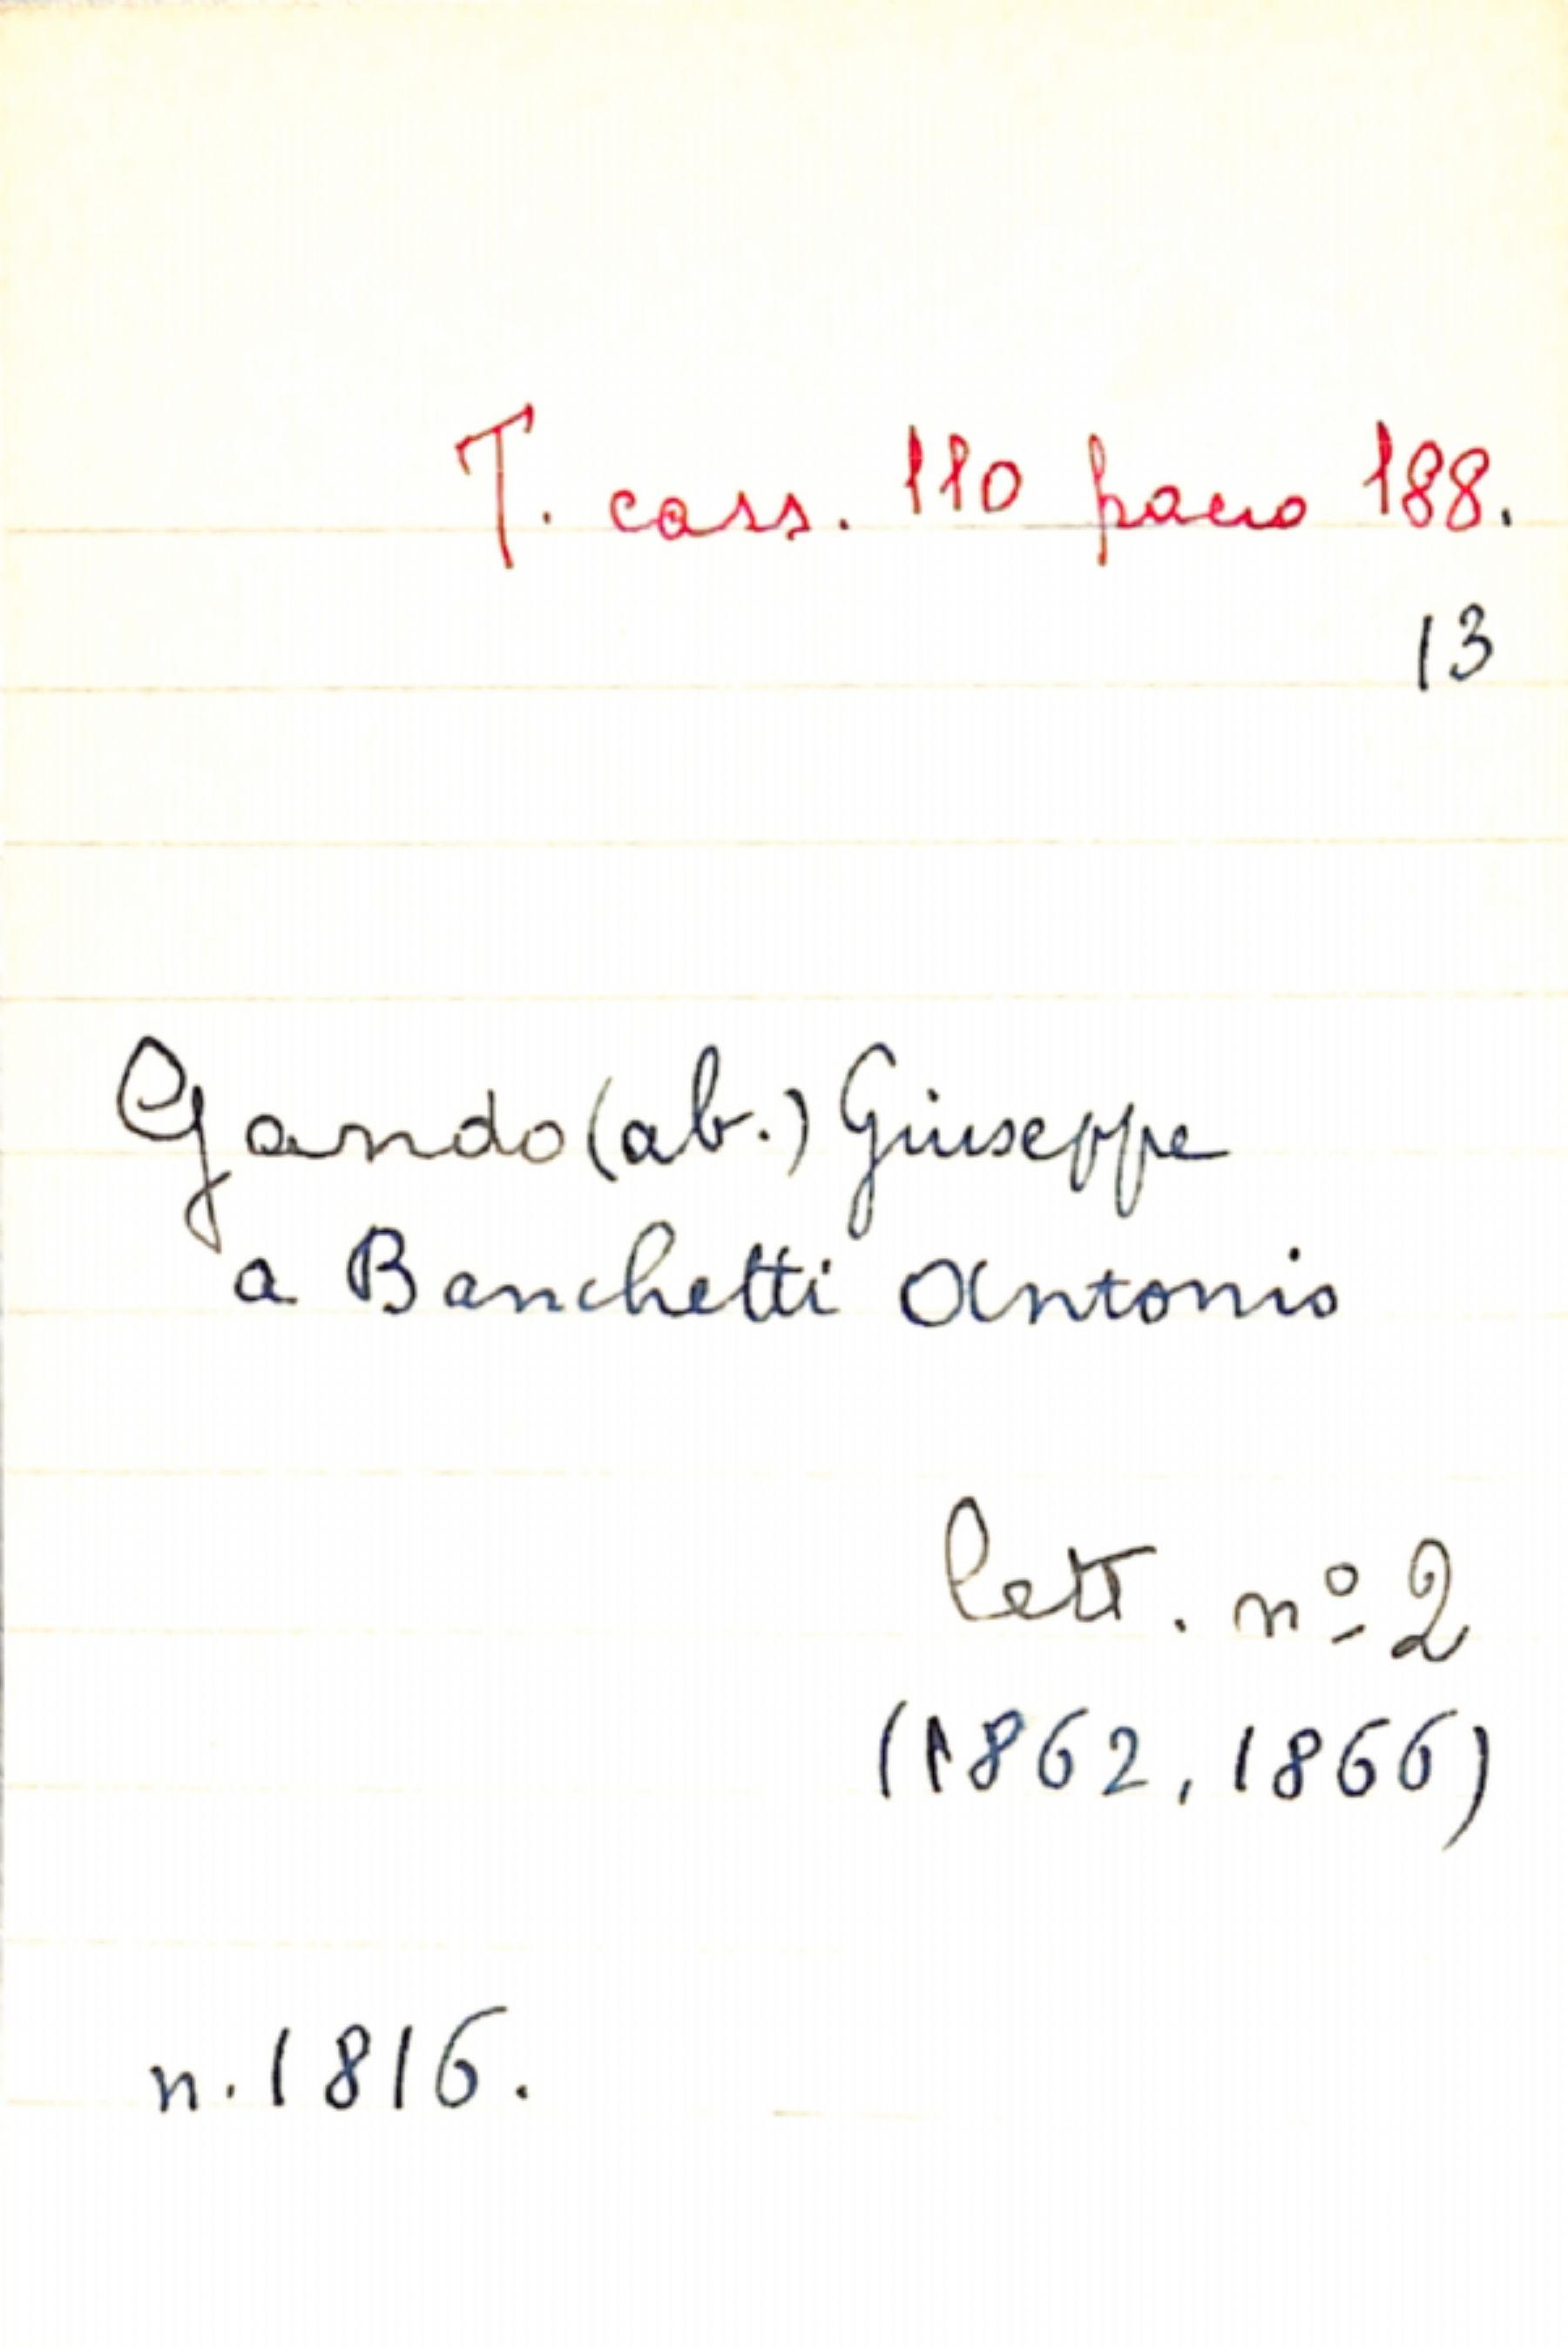 T. cass. 110 pacco 188.
13
Gando (ab.) Giuseppe
a Banchetti Antonio
lett. nº 2
(1862, 1866)
n. 1816.